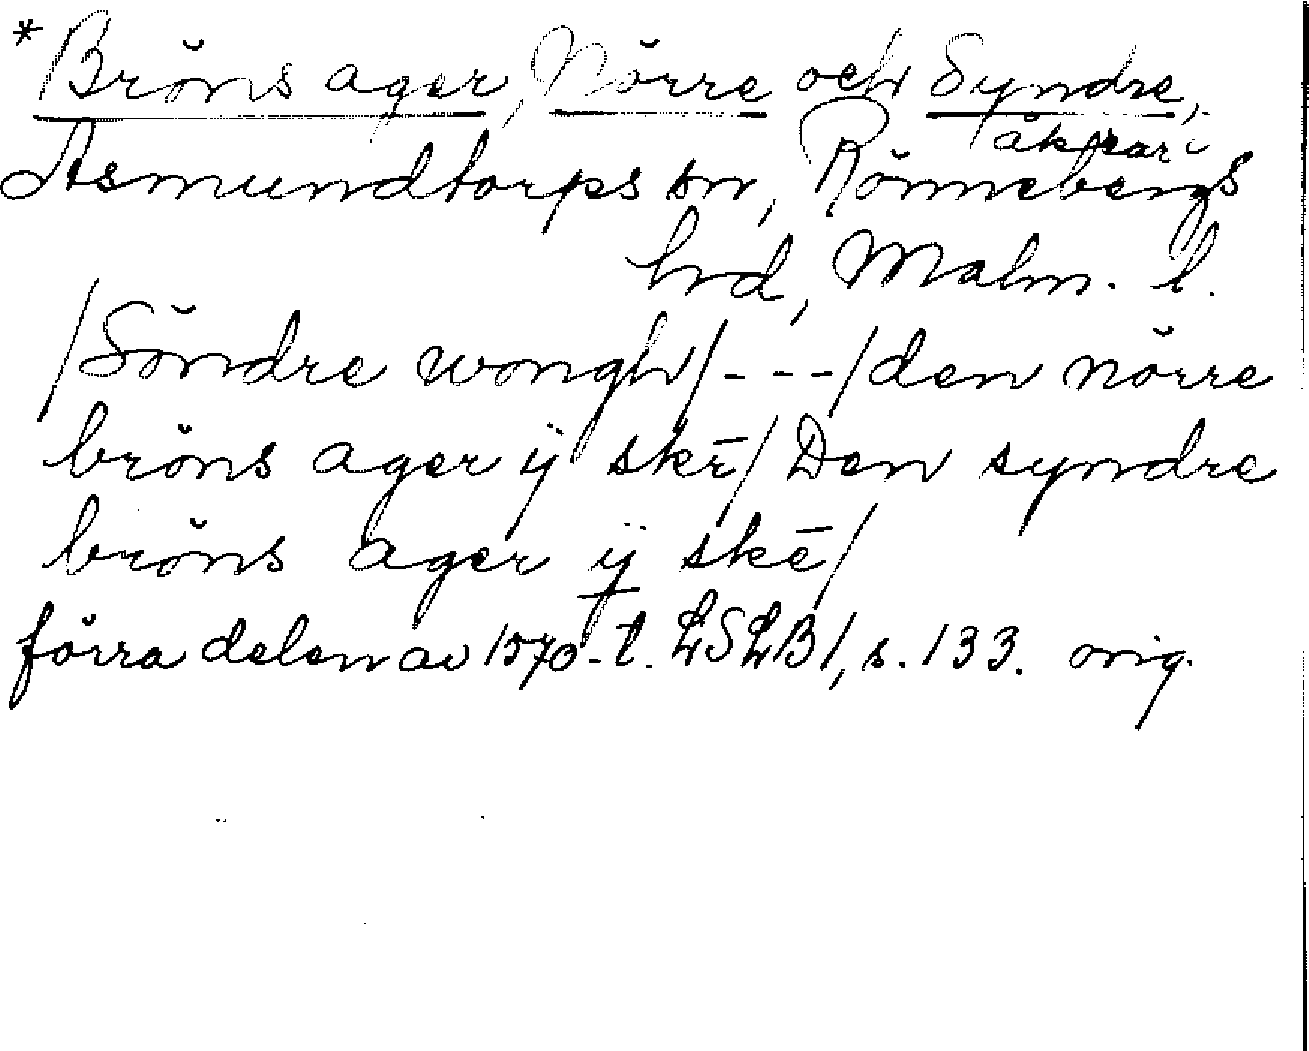 *Bröns ager, Nörre och Syndre,
åkrar i
Asmundtorps sn, Rönnebergs
hd, Malm. l.
/Söndre wongh/---/den nörre
bröns ager ij skē/ Den syndre
bröns ager ij skē/
förra delen av 1570-t. LSLB 1, s. 133. orig.